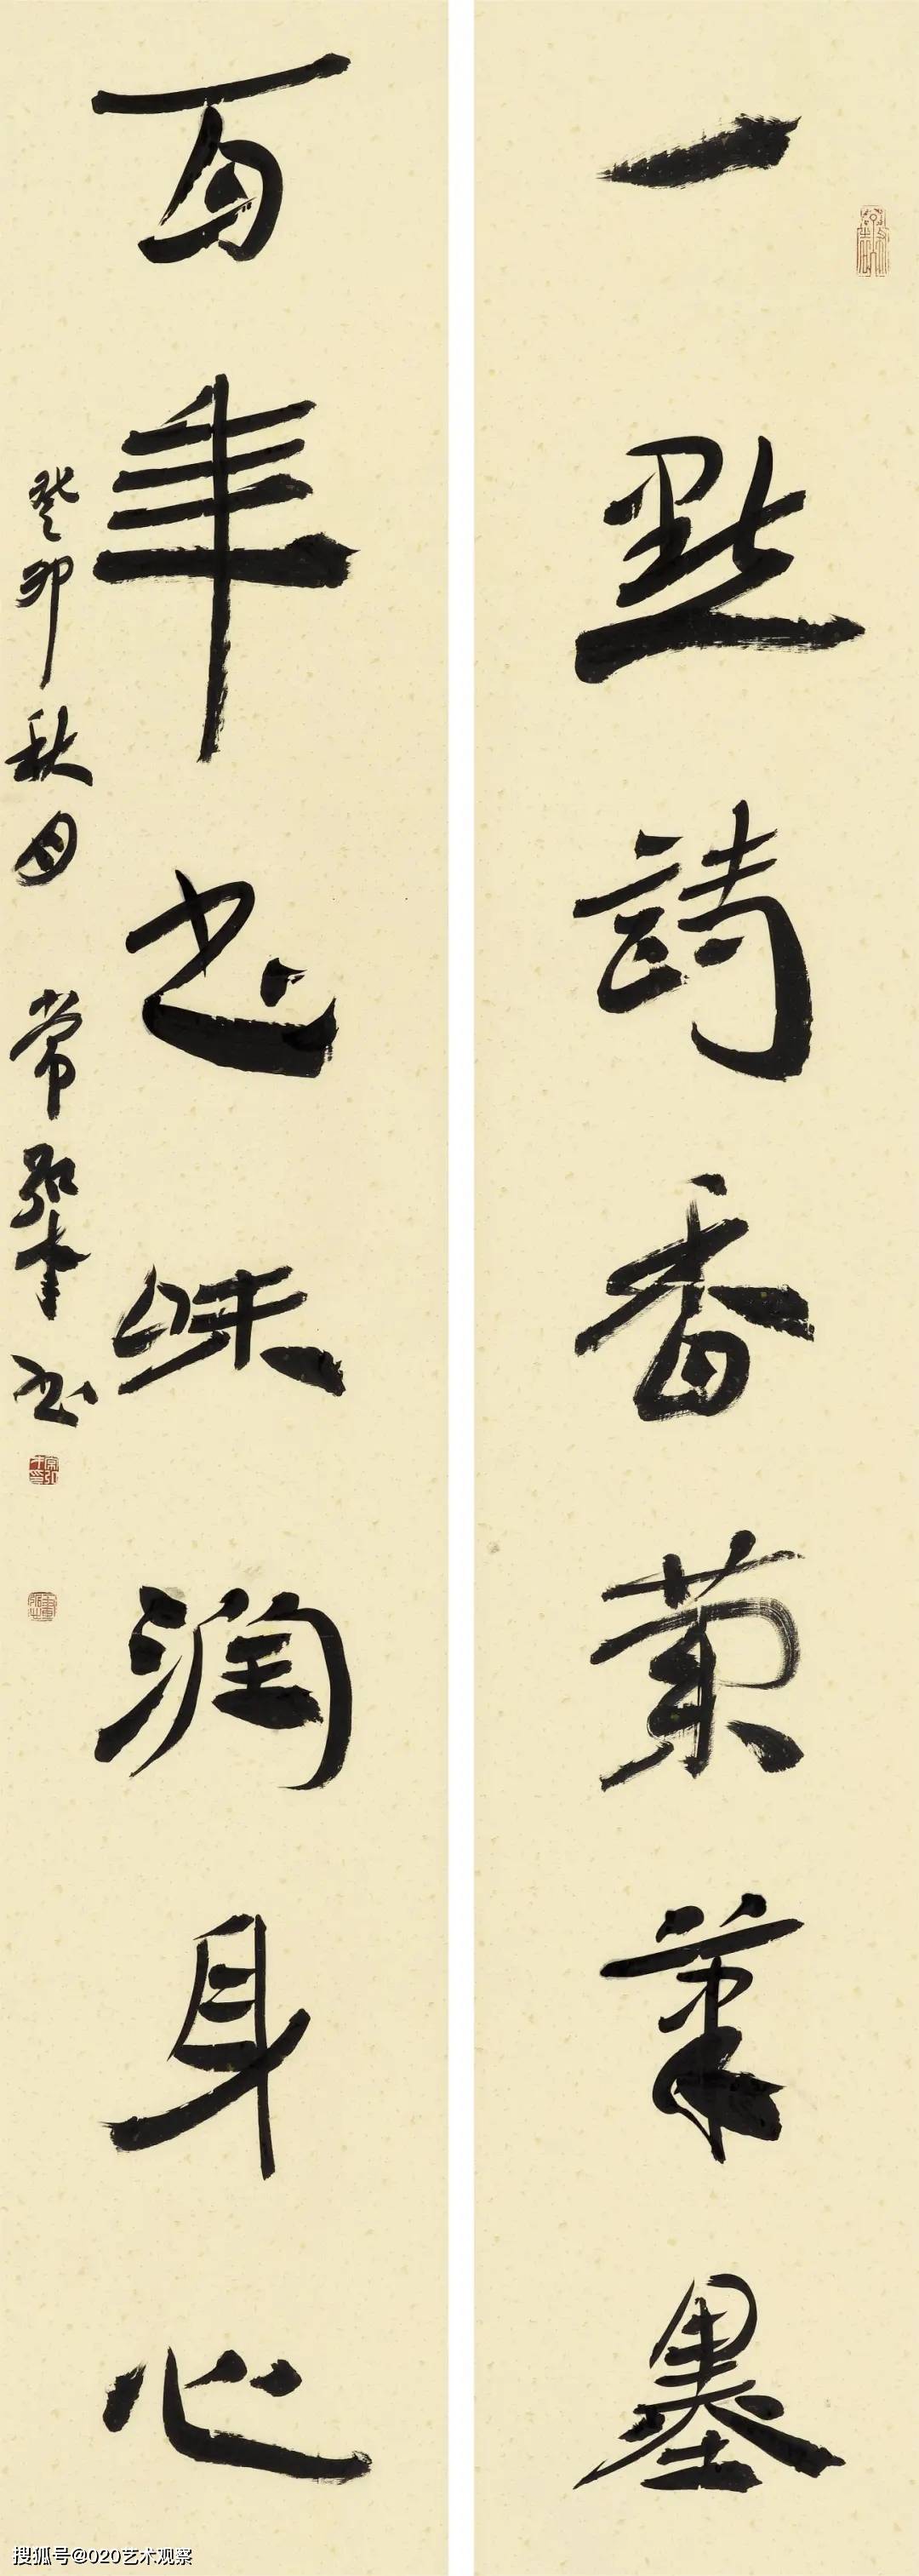 一點詩香筆墨
百年书味潤身心
癸卯秋月 常 书
搜狐号@020艺术观察